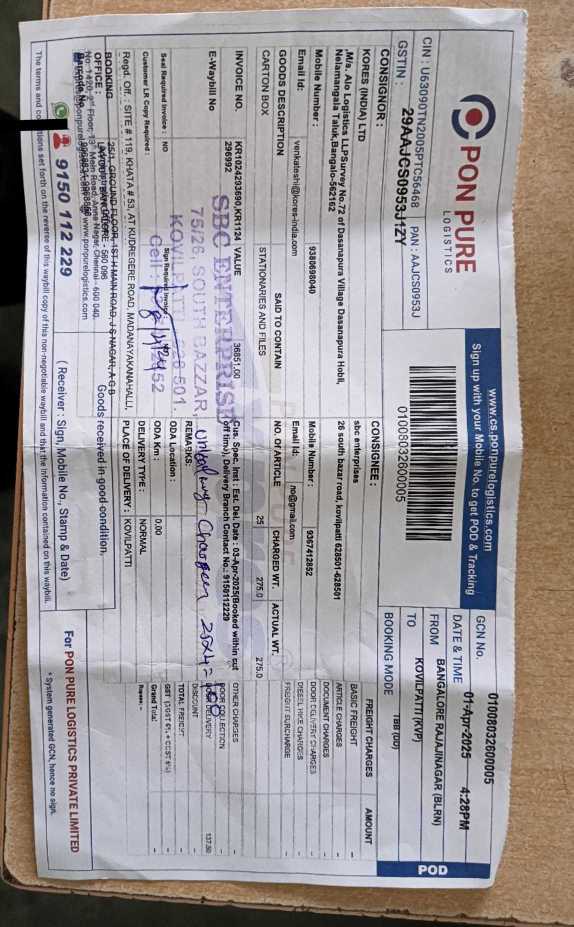 PON PURE
LOGISTICS
CIN : U63090TN2005PTC56468 PAN : AAJCS0953J
GSTIN : 29AAJCS0953J1ZY
www.cs.ponpurelogistics.com
Sign up with your Mobile No. to get POD & Tracking
01008032600005
GCN No. 01008032600005
DATE & TIME 01-Apr-2025 4:28PM
FROM BANGALORE RAJAJINAGAR (BLRN)
TO KOVILPATTI (KVP)
BOOKING MODE TBB (DD)
POD
CONSIGNOR :
KORES (INDIA) LTD
M/s. Ajo Logistics LLPSurvey No.72 of Dasanapura Village Dasanapura Hobli,
Nelamangala Taluk,Bangalo-562162
Mobile Number : 9380698040
Email Id: venkateshi@kores-india.com
CONSIGNEE :
sbc enterprises
26 south bazar road, kovilpatti 628501-628501
Mobile Number : 9357412852
Email Id: no@gmail.com
GOODS DESCRIPTION SAID TO CONTAIN NO. OF ARTICLE CHARGED WT. ACTUAL WT.
CARTON BOX STATIONARIES AND FILES 25 275.0 275.0
FREIGHT CHARGES AMOUNT
BASIC FREIGHT -
ARTICLE CHARGES -
DOCUMENT CHARGES -
DOOR DELIVERY CHARGES -
DIESEL HIKE CHARGES -
FREIGHT SURCHARGE -
OTHER CHARGES -
DOOR COLLECTION -
DOOR DELIVERY 137.50
DISCOUNT -
TOTAL FREIGHT -
Grand Total -
INVOICE NO. KR1024293590,KR1124 VALUE 36851.00
296992
E-Waybill No
Cus. Spec. Inst : Est. Del. Date : 03-Apr-2025(Booked within cut
off time), Delivery Branch Contact No.: 9150112229
REMARKS:
Unloading Charges 25x4=100
SBC ENTERPRISES
75/26, SOUTH BAZZAR,
KOVILPATTI 628 501.
Seal Required Invoice : NO
Sign Required Invoice
Customer LR Copy Required :
ODA Location :
ODA Km : 0.00
DELIVERY TYPE : NORMAL
PLACE OF DELIVERY : KOVILPATTI
Regd. Off : SITE # 119, KHATA # 53, AT KUDREGERE ROAD, MADANAYAKANAHALLI,
BOOKING OFFICE : 25/1, GROUND FLOOR, 1ST H MAIN ROAD, J S NAGAR, A G B
No: 1420, 13th Main Road, Anna Nagar, Chennai - 600 040.
www.ponpurelogistics.com
9150 112 229
Goods received in good condition.
( Receiver : Sign, Mobile No., Stamp & Date)
For PON PURE LOGISTICS PRIVATE LIMITED
* System generated GCN, hence no sign.
The terms and conditions set forth on the reverse of this waybill copy of this non-negotiable waybill and that the information contained on this waybill.